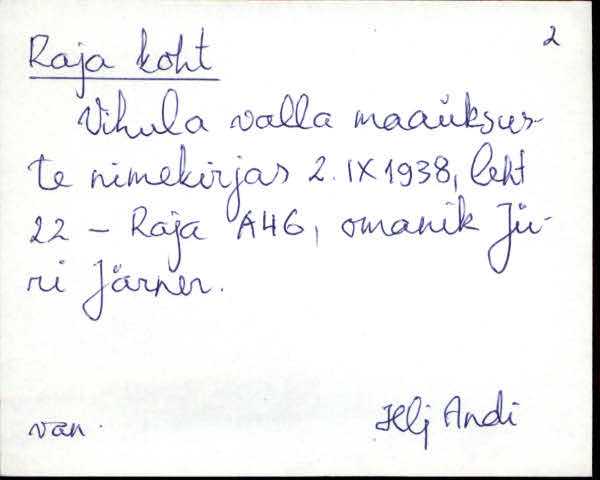 Raja koht
2
Vihula valla maaüksus-
te nimekirjas 2. IX 1938, leht
22 - Raja A46, omanik Jü-
ri Järner.
van.
Hlj Andi